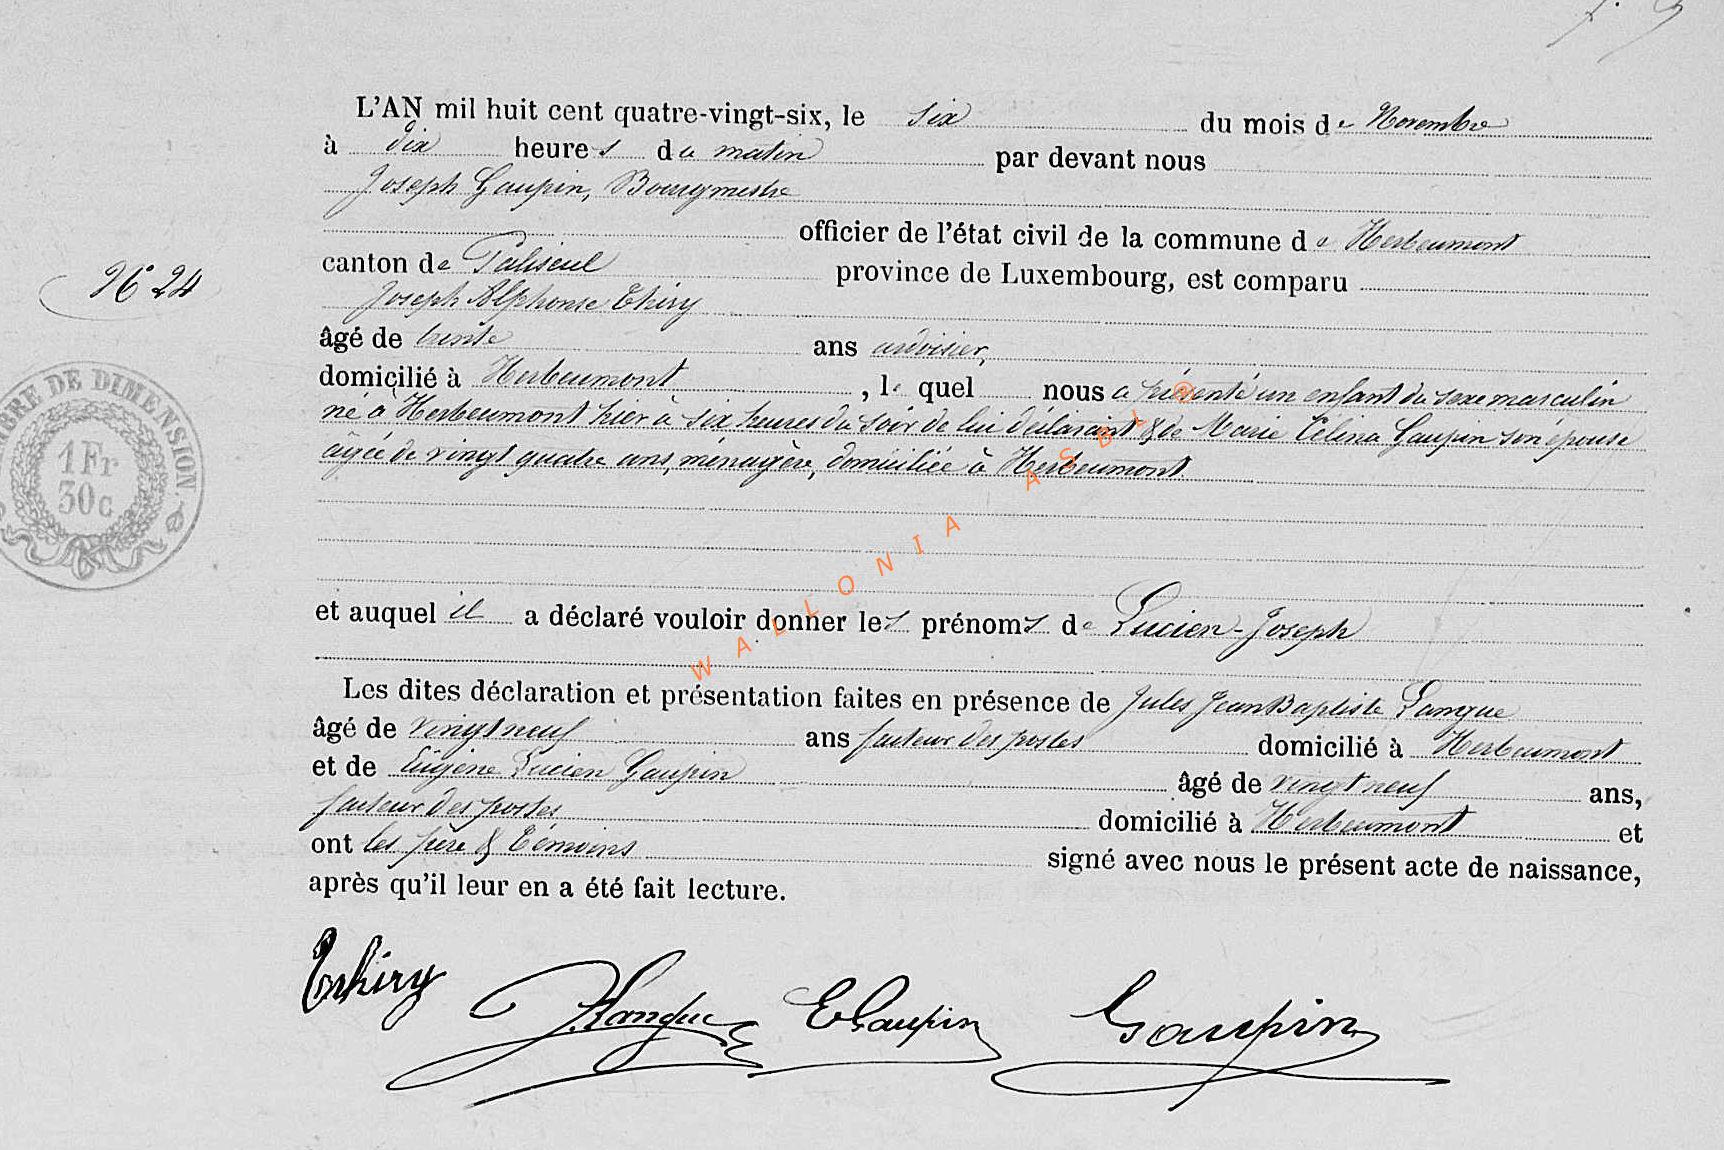 L'AN mil huit cent quatre-vingt-six, le six du mois de Novembre
à dix heures du matin par devant nous
Joseph Gaupin, Bourgmestre
officier de l'état civil de la commune de Herbeumont
canton de Paliseul province de Luxembourg, est comparu
Joseph Alphonse Thiry
âgé de trente ans ardoisier,
domicilié à Herbeumont, lequel nous a présenté un enfant du sexe masculin
né à Herbeumont hier à six heures du soir de lui déclarant & de Marie Célina Gaupin son épouse
âgée de vingt quatre ans, ménagère, domiciliée à Herbeumont
et auquel il a déclaré vouloir donner les prénoms de Lucien-Joseph
Les dites déclaration et présentation faites en présence de Jules Jean Baptiste Lanque
âgé de vingt neuf ans facteur des postes domicilié à Herbeumont
et de Eugène Lucien Gaupin âgé de vingt neuf ans,
facteur des postes domicilié à Herbeumont et
ont les père & témoins signé avec nous le présent acte de naissance,
après qu'il leur en a été fait lecture.
N° 24
TIMBRE DE DIMENSION.
1 Fr
30 c
WALLONIA ASBL ©
Thiry J. Lanque E Gaupin Gaupin